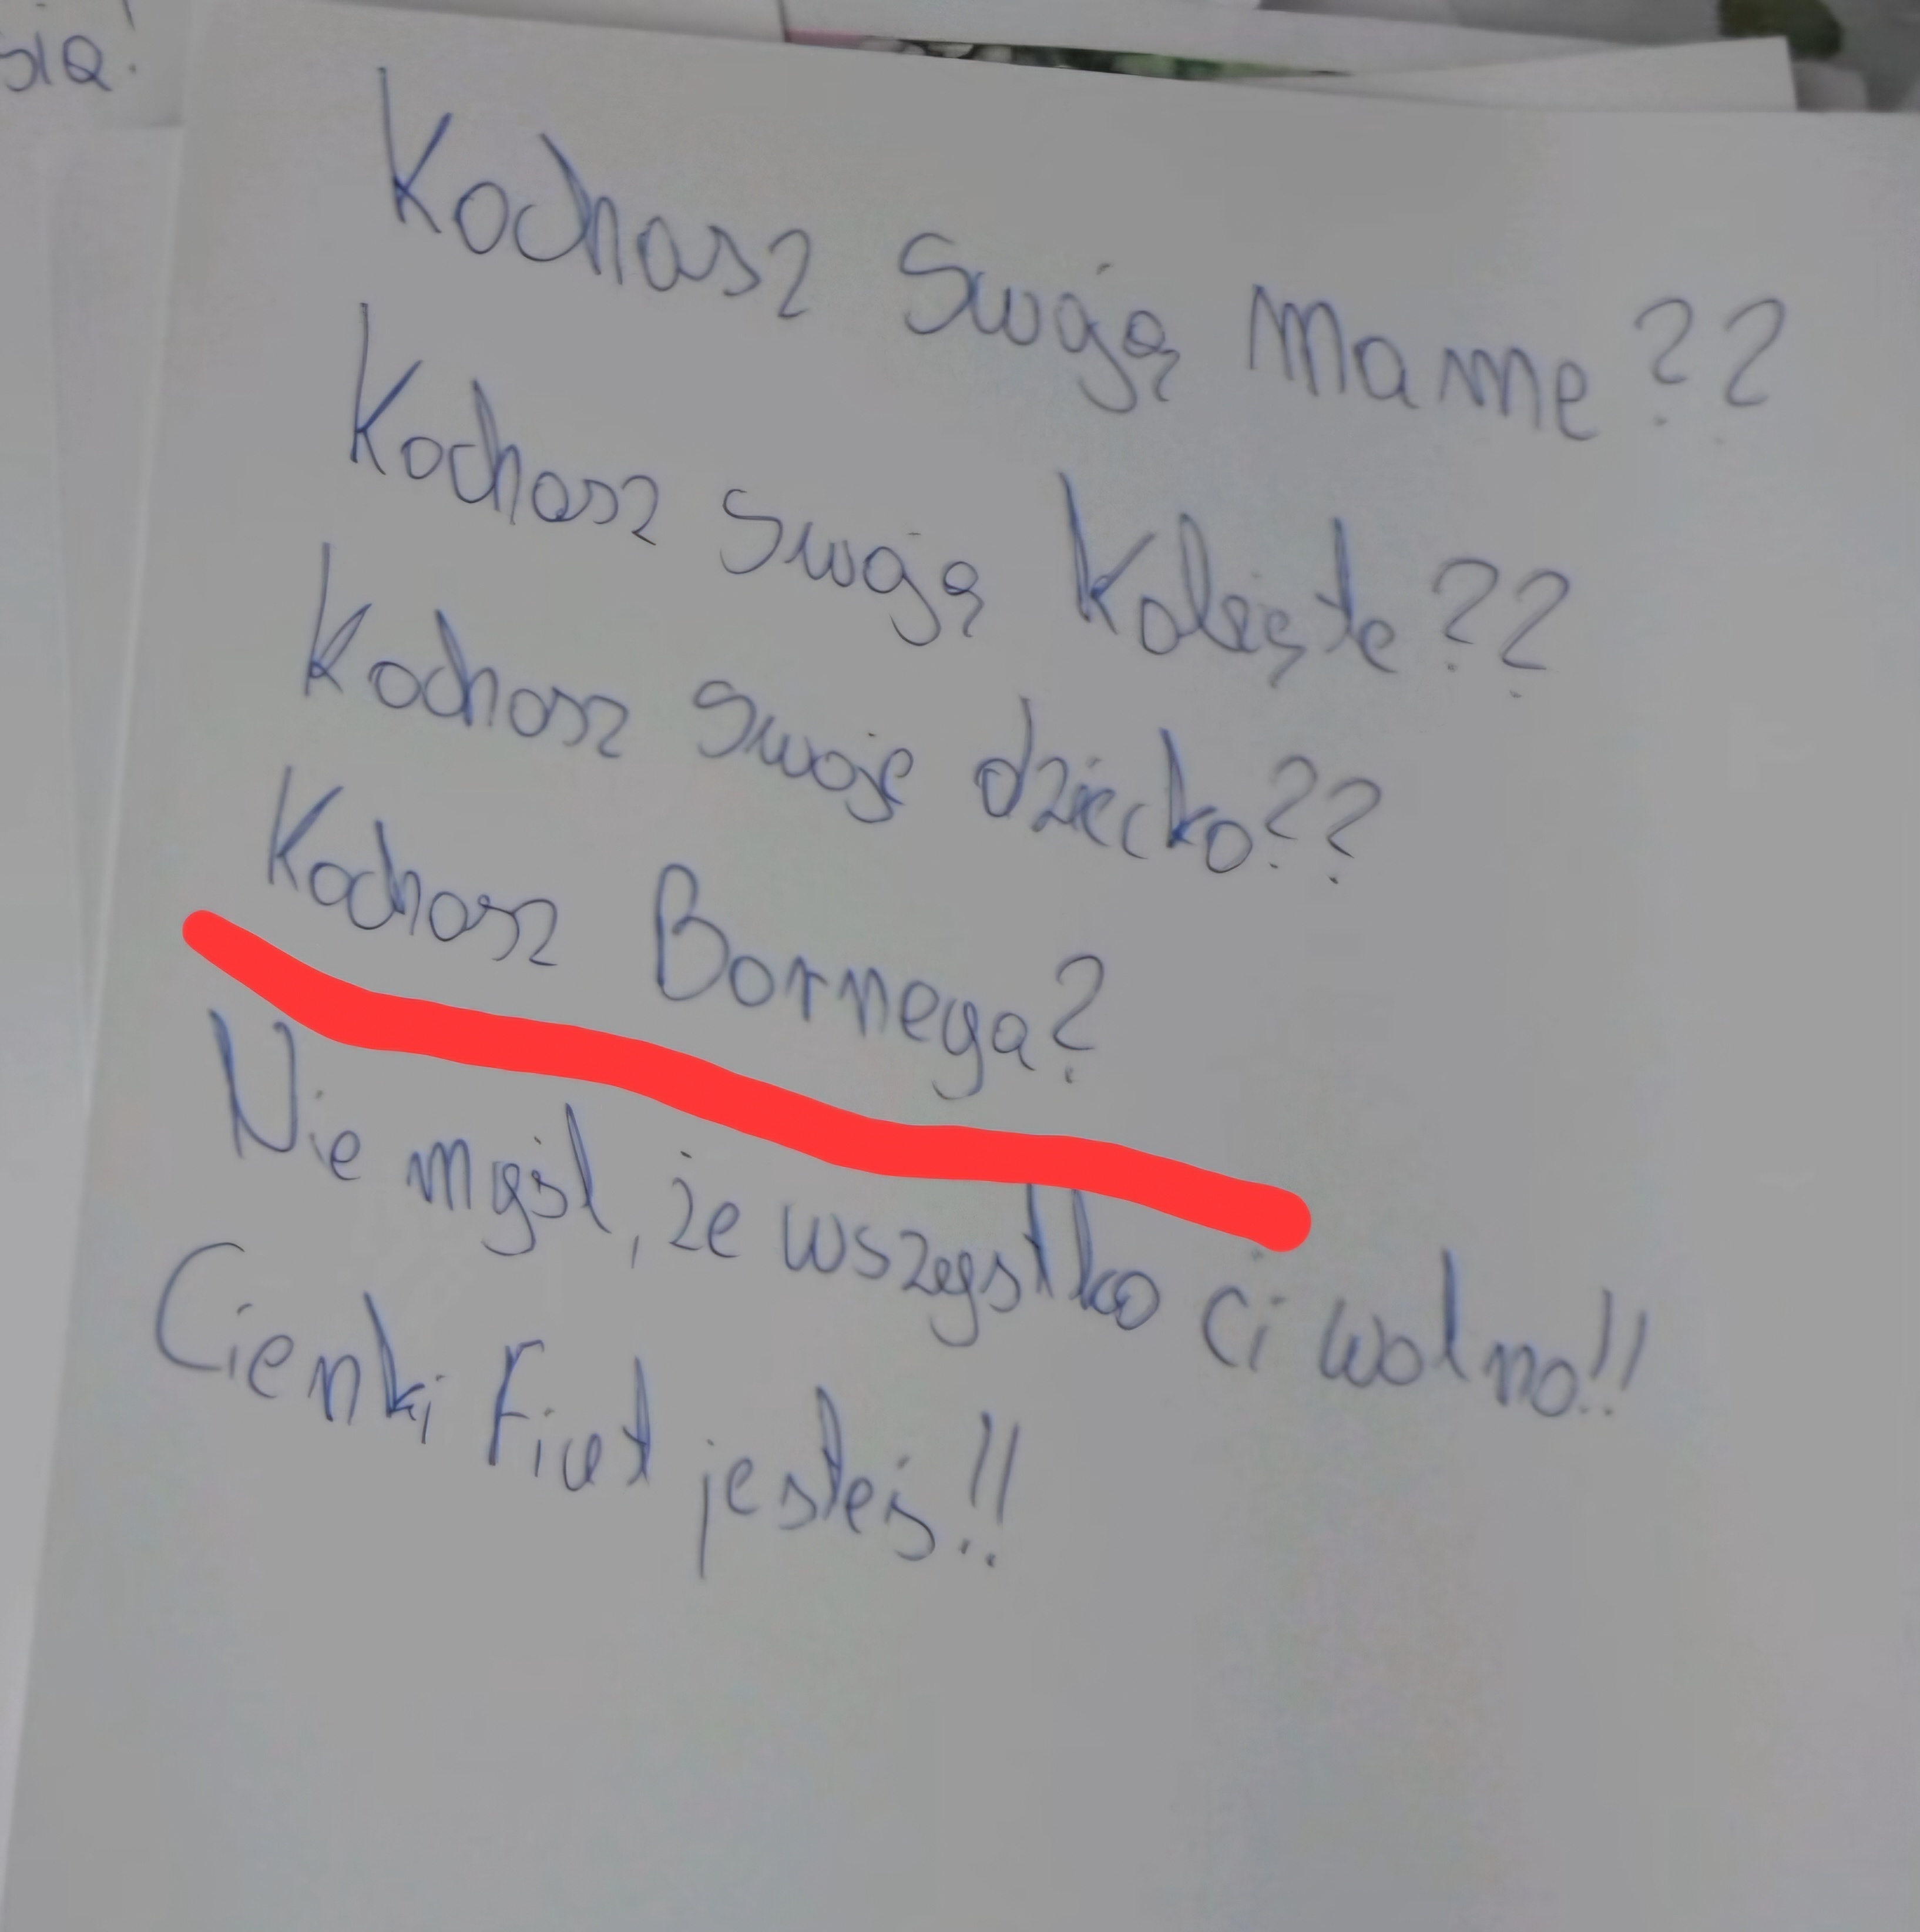 się!
Kochasz swoją Mamę??
Kochasz swoją Kobietę??
Kochasz swoje dziecko??
Kochasz Bornega?
Nie myśl, że wszystko ci wolno!!
Cienki Fiut jesteś!!